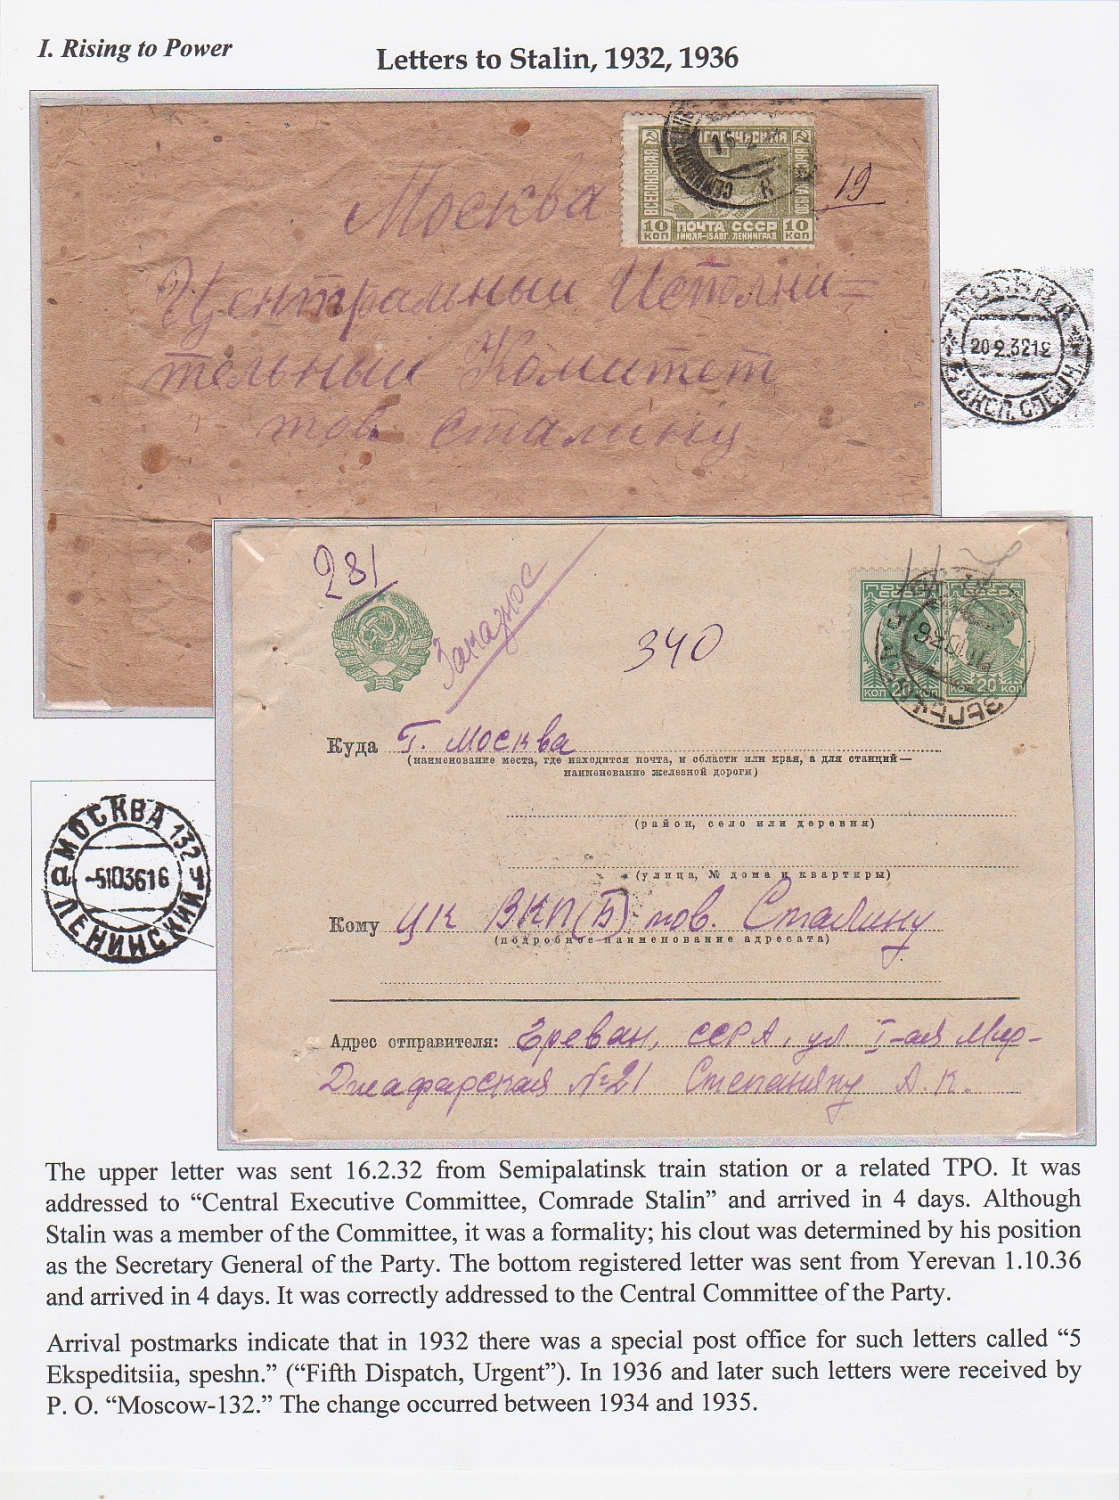 I. Rising to Power
Letters to Stalin, 1932, 1936
ВСЕСОЮЗНАЯ
10 КОП ПОЧТА СССР 10 КОП
ЛЕНИНГРАД
19
Москва
Центральный Исполни=
тельный Комитет
тов Сталину
МОСКВА
20 2.32 12
ЭКСП. СПЕШН
281
Заказное
340
КОП 20 КОП
КОП 20 КОП
Куда Г. Москва
(наименование места, где находится почта, и области или края, а для станций—
наименование железной дороги)
(район, село или деревня)
(улица, № дома и квартиры)
МОСКВА 132
-5103616
ЛЕНИНСКИЙ
Кому ЦК ВКП(Б) тов. Сталину
(подробное наименование адресата)
Адрес отправителя: Ереван, ССРА, ул I-ая Мир-
Джафарская №21 Степаняну А. К.
The upper letter was sent 16.2.32 from Semipalatinsk train station or a related TPO. It was
addressed to “Central Executive Committee, Comrade Stalin” and arrived in 4 days. Although
Stalin was a member of the Committee, it was a formality; his clout was determined by his position
as the Secretary General of the Party. The bottom registered letter was sent from Yerevan 1.10.36
and arrived in 4 days. It was correctly addressed to the Central Committee of the Party.
Arrival postmarks indicate that in 1932 there was a special post office for such letters called “5
Ekspeditsiia, speshn.” (“Fifth Dispatch, Urgent”). In 1936 and later such letters were received by
P. O. “Moscow-132.” The change occurred between 1934 and 1935.